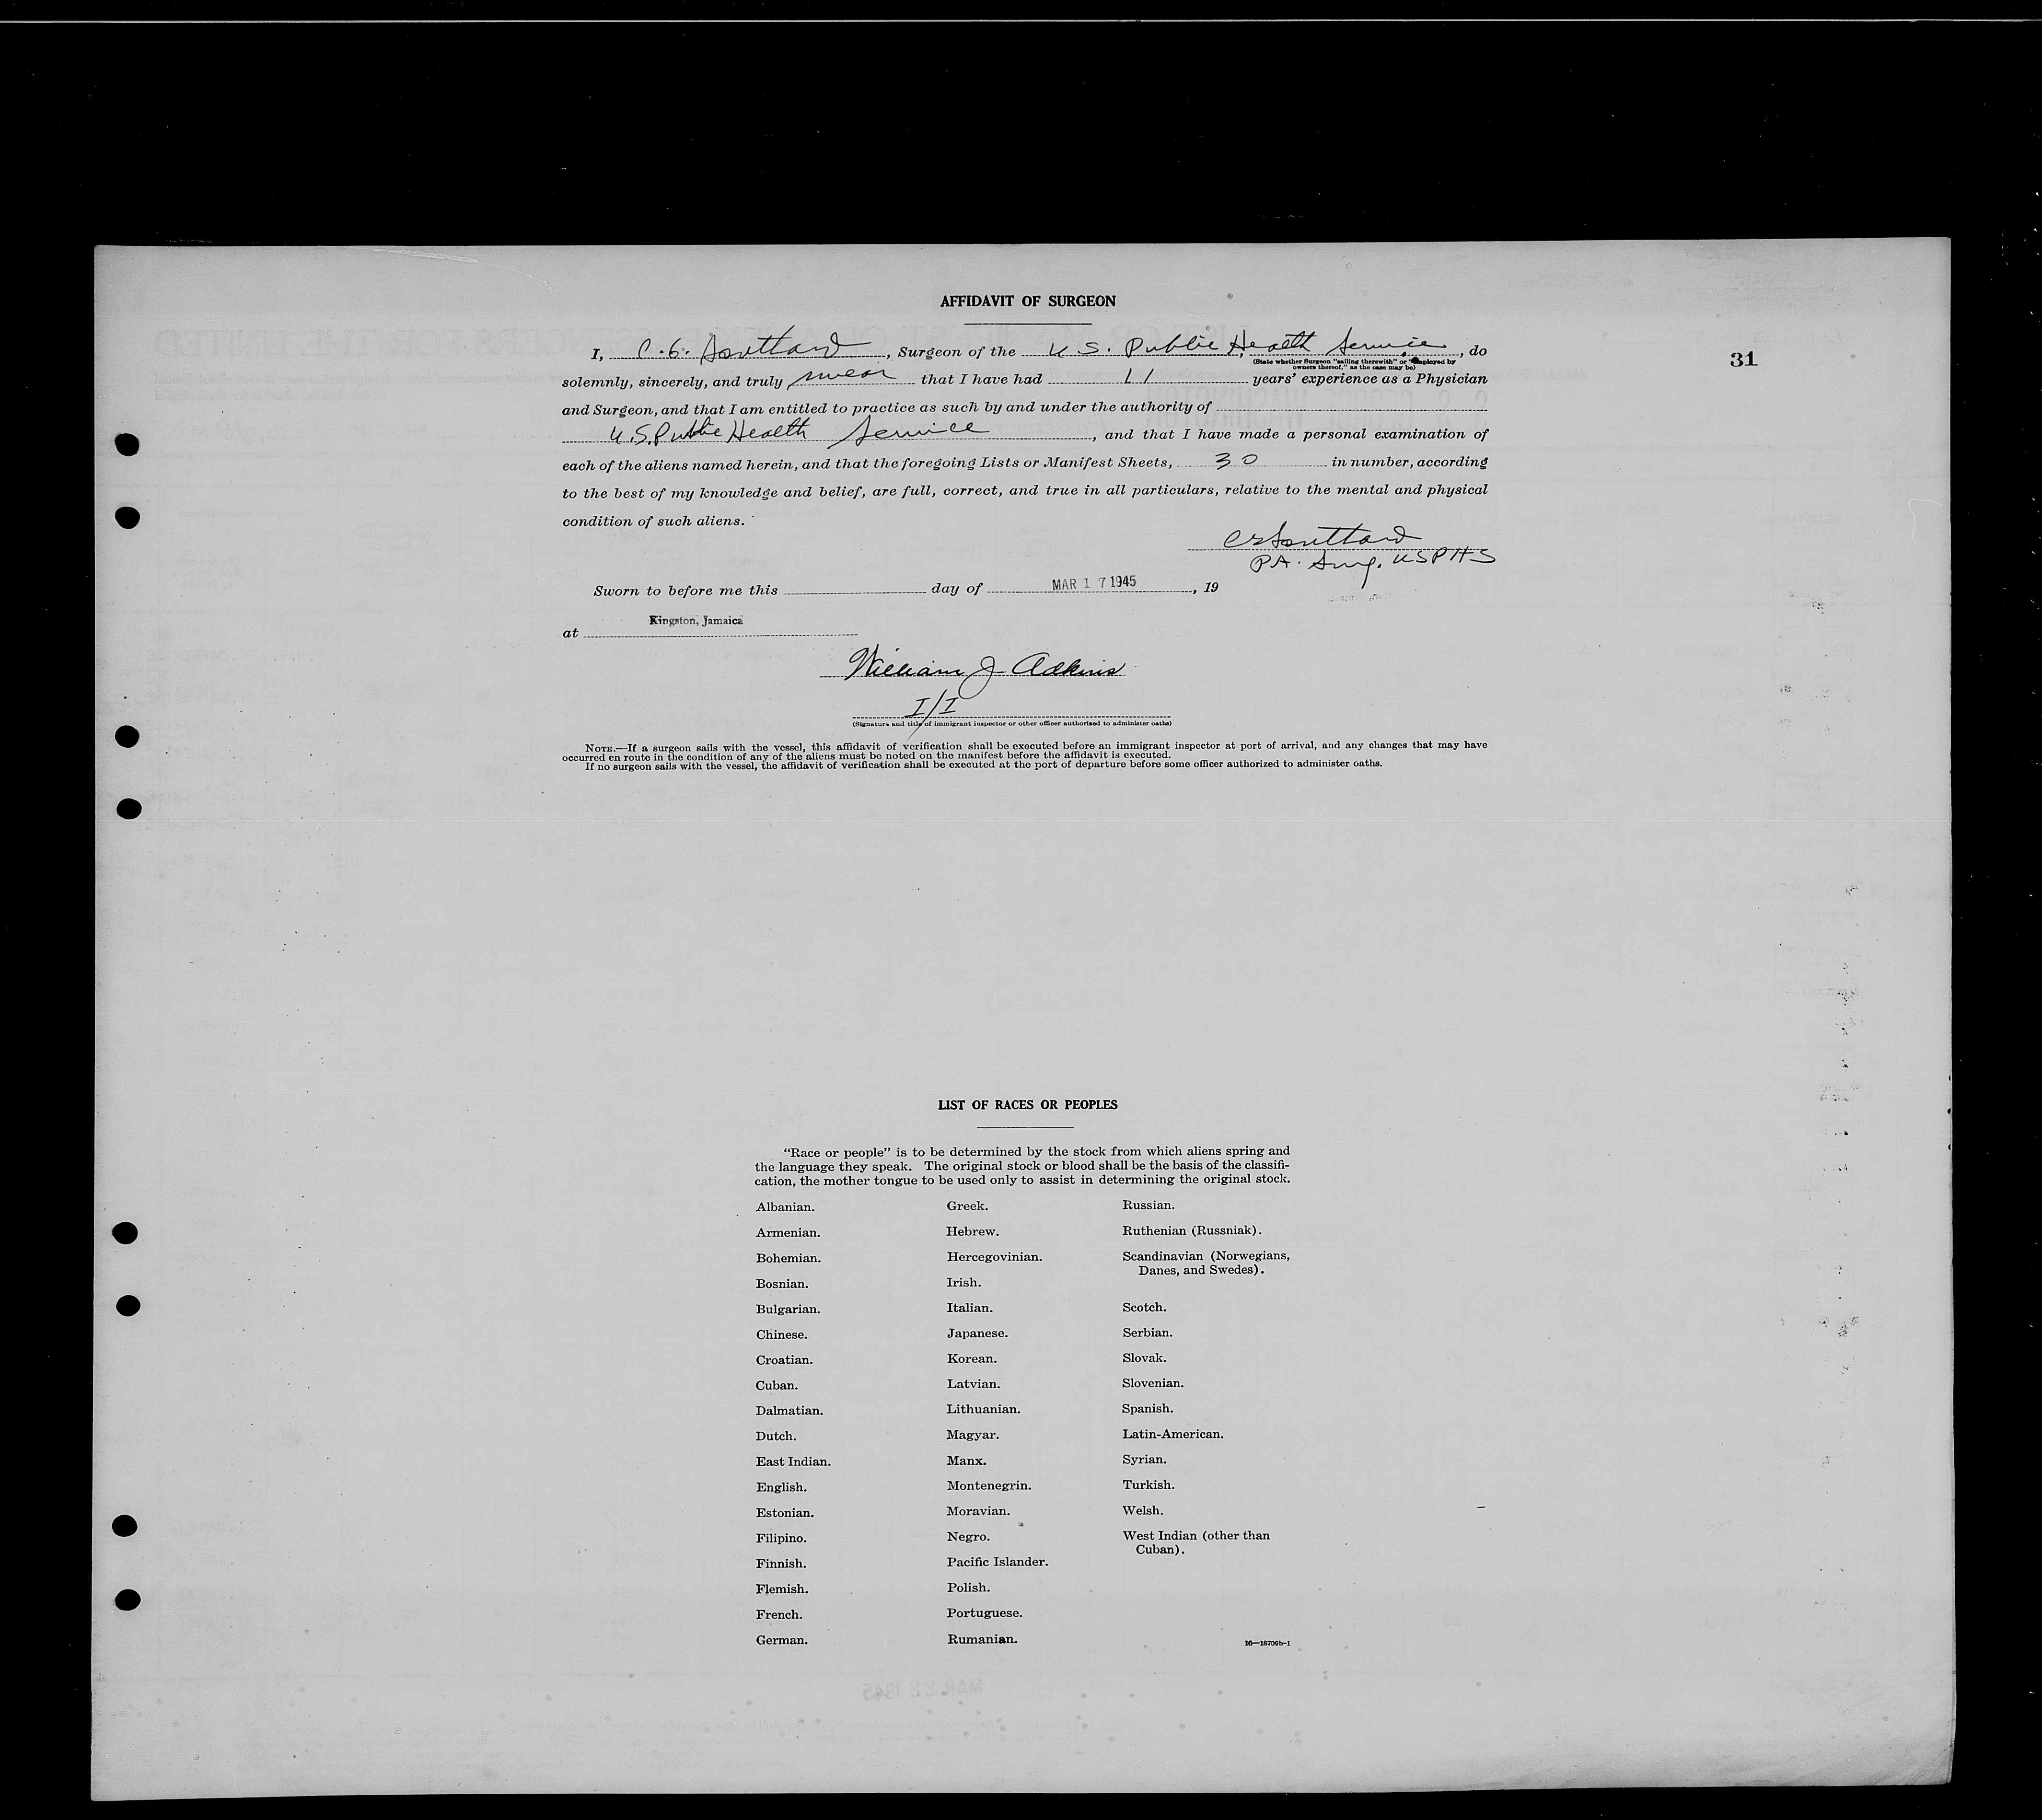 AFFIDAVIT OF SURGEON
31
I, C. G. Southard, Surgeon of the U.S. Public Health Service, do
(State whether Surgeon "sailing therewith" or "employed by
owners thereof," as the case may be)
solemnly, sincerely, and truly swear that I have had 11 years' experience as a Physician
and Surgeon, and that I am entitled to practice as such by and under the authority of
U.S. Public Health Service, and that I have made a personal examination of
each of the aliens named herein, and that the foregoing Lists or Manifest Sheets, 30 in number, according
to the best of my knowledge and belief, are full, correct, and true in all particulars, relative to the mental and physical
condition of such aliens.
P.A. Surg. USPHS
Sworn to before me this day of MAR 17 1945, 19
at Kingston, Jamaica
William J Adkins
I/I
(Signature and title of immigrant inspector or other officer authorized to administer oaths)
NOTE.—If a surgeon sails with the vessel, this affidavit of verification shall be executed before an immigrant inspector at port of arrival, and any changes that may have
occurred en route in the condition of any of the aliens must be noted on the manifest before the affidavit is executed.
If no surgeon sails with the vessel, the affidavit of verification shall be executed at the port of departure before some officer authorized to administer oaths.
LIST OF RACES OR PEOPLES
"Race or people" is to be determined by the stock from which aliens spring and
the language they speak. The original stock or blood shall be the basis of the classifi-
cation, the mother tongue to be used only to assist in determining the original stock.
Albanian.
Armenian.
Bohemian.
Bosnian.
Bulgarian.
Chinese.
Croatian.
Cuban.
Dalmatian.
Dutch.
East Indian.
English.
Estonian.
Filipino.
Finnish.
Flemish.
French.
German.
Greek.
Hebrew.
Hercegovinian.
Irish.
Italian.
Japanese.
Korean.
Latvian.
Lithuanian.
Magyar.
Manx.
Montenegrin.
Moravian.
Negro.
Pacific Islander.
Polish.
Portuguese.
Rumanian.
Russian.
Ruthenian (Russniak).
Scandinavian (Norwegians,
Danes, and Swedes).
Scotch.
Serbian.
Slovak.
Slovenian.
Spanish.
Latin-American.
Syrian.
Turkish.
Welsh.
West Indian (other than
Cuban).
16—18709b-1
MAR 22 1945